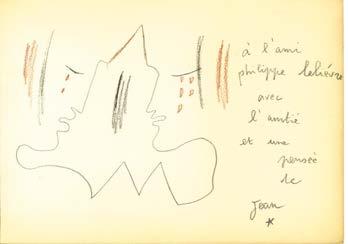 à l'ami
philippe Lelièvre
avec
l'amitié
et une
pensée
de
Jean